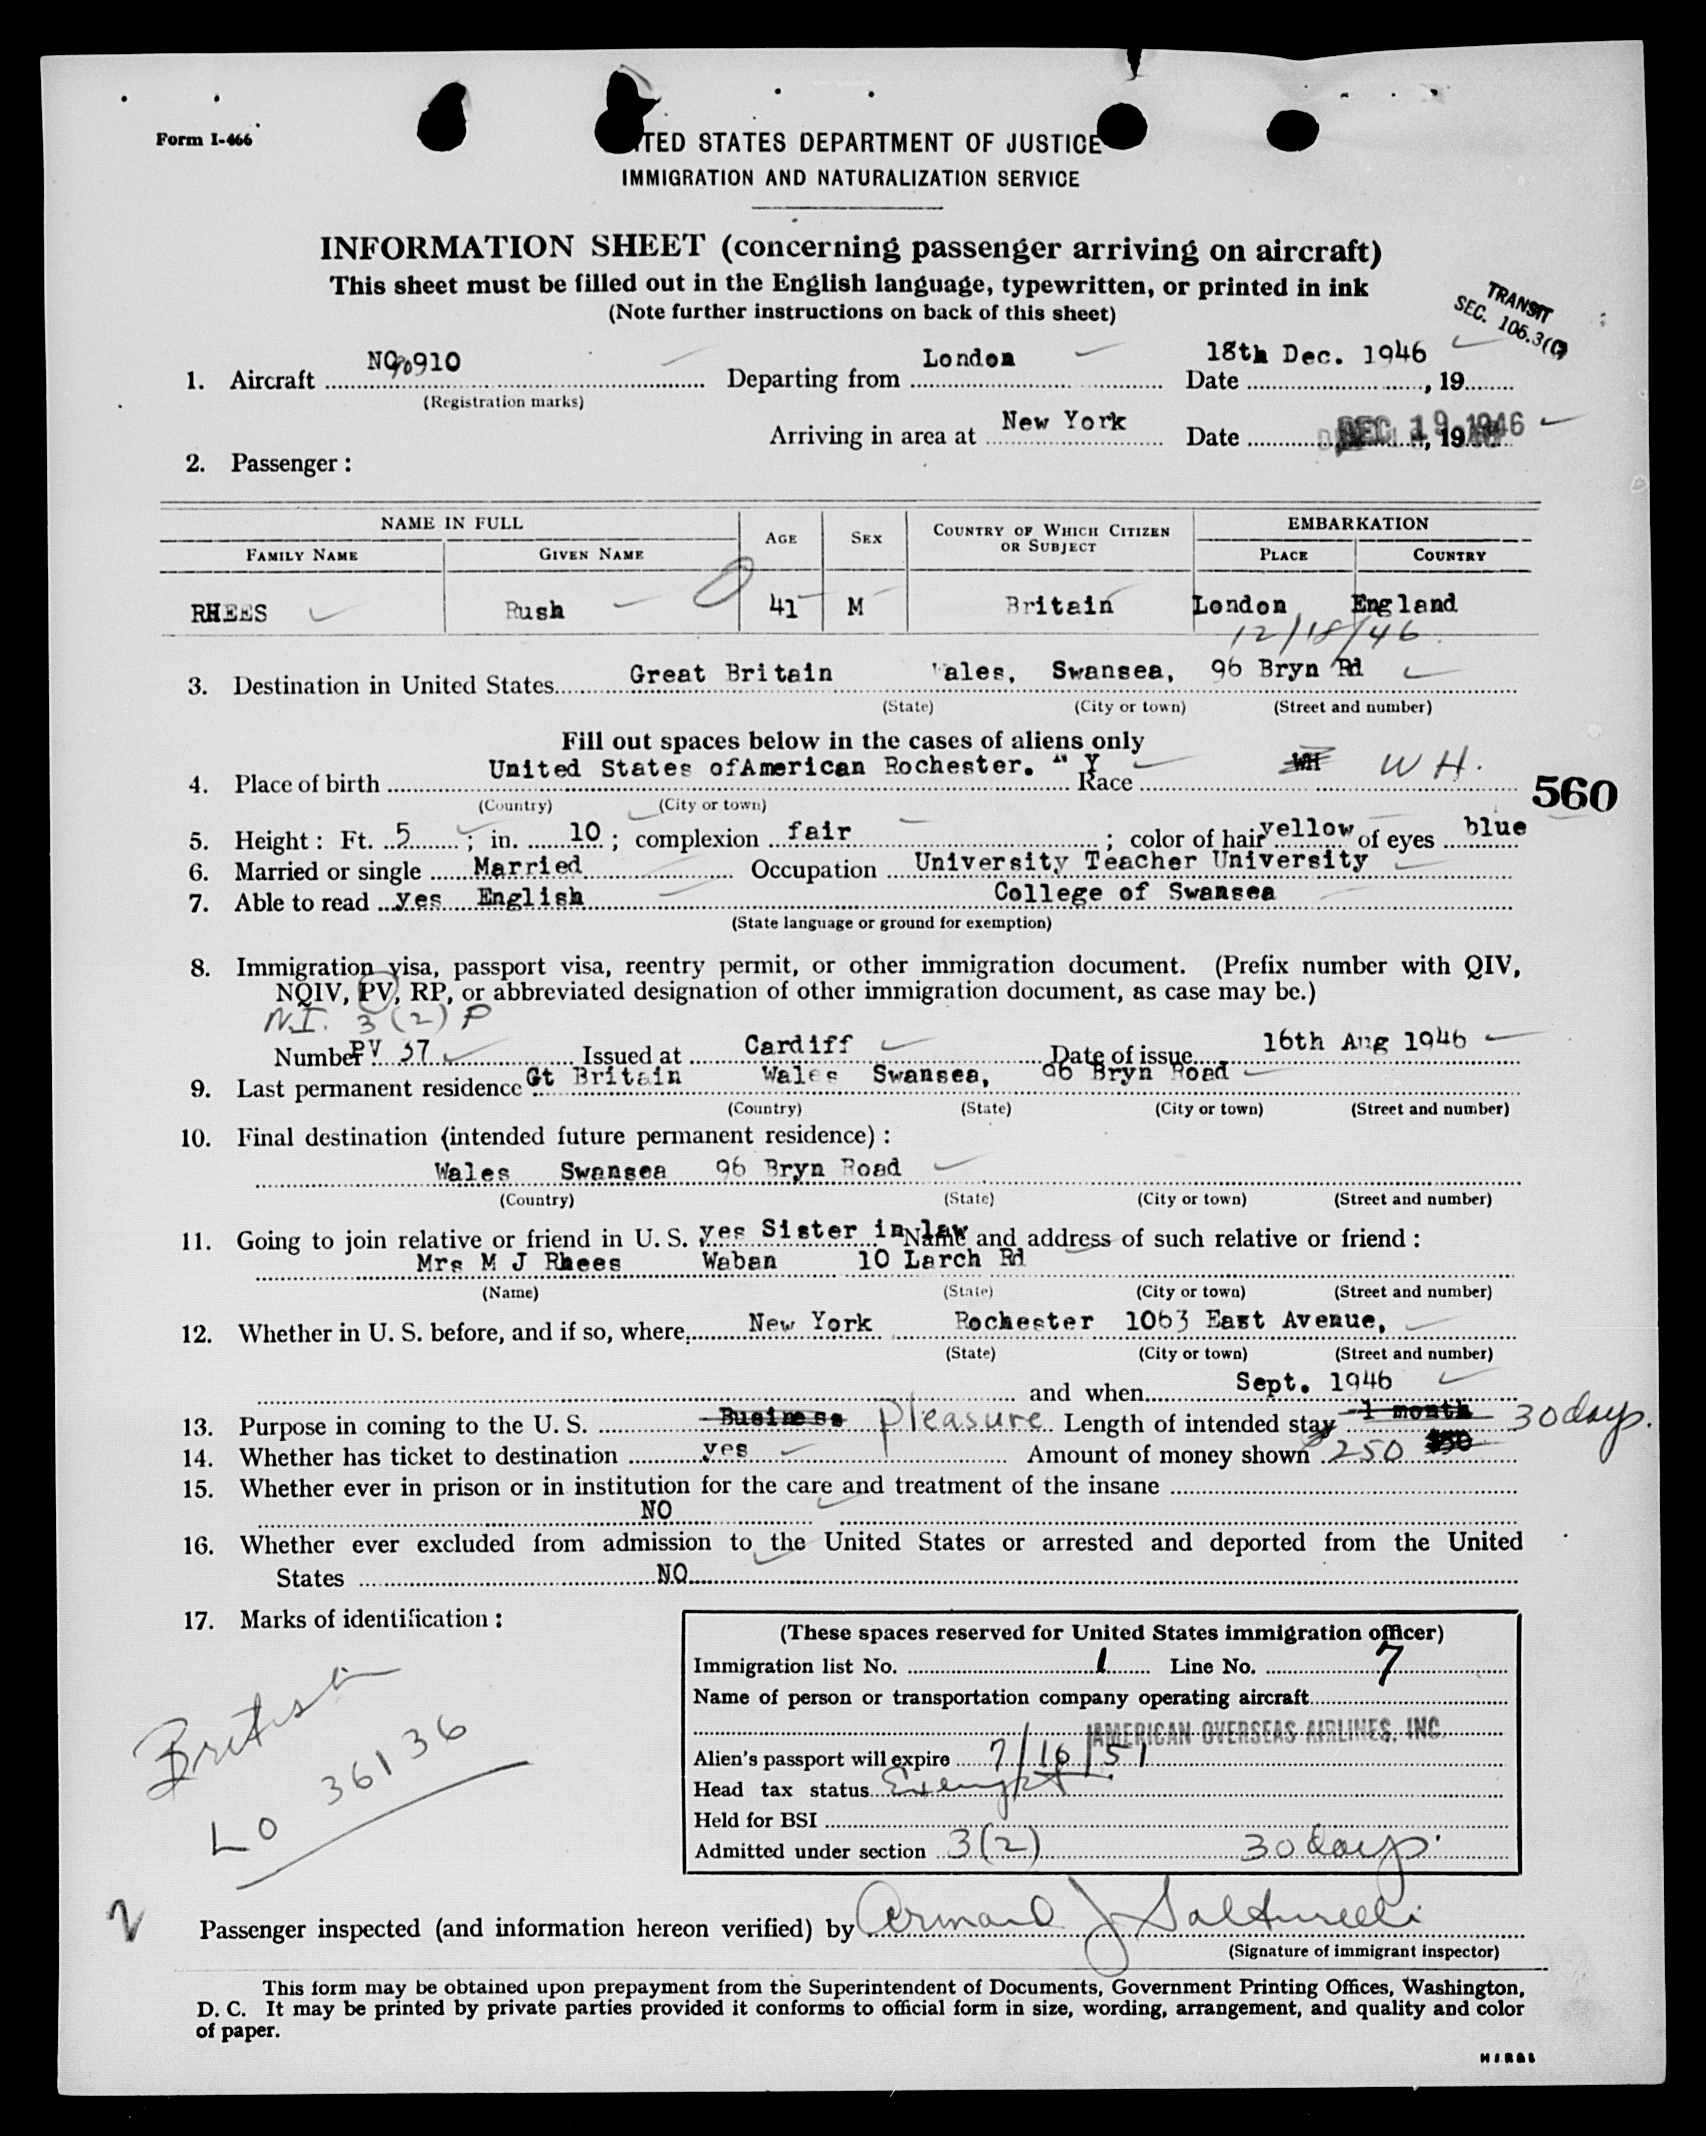 Form I-466
TED STATES DEPARTMENT OF JUSTICE
IMMIGRATION AND NATURALIZATION SERVICE
INFORMATION SHEET (concerning passenger arriving on aircraft)
This sheet must be filled out in the English language, typewritten, or printed in ink
(Note further instructions on back of this sheet)
TRANSIT
SEC. 106.3(C)
1. Aircraft NC90910 Departing from London Date 18th Dec. 1946, 19
(Registration marks)
Arriving in area at New York Date DEC 19 1946, 19
2. Passenger:
NAME IN FULL AGE SEX COUNTRY OF WHICH CITIZEN OR SUBJECT EMBARKATION
FAMILY NAME GIVEN NAME PLACE COUNTRY
RHEES Rush 41 M Britain London, England
12/18/46
3. Destination in United States Great Britain Wales, Swansea, 96 Bryn Rd
(State) (City or town) (Street and number)
Fill out spaces below in the cases of aliens only
4. Place of birth United States ofAmerican Rochester. N Y Race WH WH.
(Country) (City or town)
560
5. Height: Ft. 5; in. 10; complexion fair; color of hair yellow of eyes blue
6. Married or single Married Occupation University Teacher University
7. Able to read yes English College of Swansea
(State language or ground for exemption)
8. Immigration visa, passport visa, reentry permit, or other immigration document. (Prefix number with QIV,
NQIV, PV, RP, or abbreviated designation of other immigration document, as case may be.)
N.I. 3(2) P
Number PV 37 Issued at Cardiff Date of issue 16th Aug 1946
9. Last permanent residence Gt Britain Wales Swansea, 96 Bryn Road
(Country) (State) (City or town) (Street and number)
10. Final destination (intended future permanent residence):
Wales Swansea 96 Bryn Road
(Country) (State) (City or town) (Street and number)
11. Going to join relative or friend in U. S. yes Sister in law Name and address of such relative or friend:
Mrs M J Rhees Waban 10 Larch Rd
(Name) (State) (City or town) (Street and number)
12. Whether in U. S. before, and if so, where, New York Rochester 1063 East Avenue,
(State) (City or town) (Street and number)
and when Sept. 1946
13. Purpose in coming to the U. S. Business Pleasure Length of intended stay 1 month 30 days.
14. Whether has ticket to destination yes Amount of money shown 250
15. Whether ever in prison or in institution for the care and treatment of the insane
NO
16. Whether ever excluded from admission to the United States or arrested and deported from the United
States NO
17. Marks of identification:
British
LO 36136
(These spaces reserved for United States immigration officer)
Immigration list No. 1 Line No. 7
Name of person or transportation company operating aircraft
AMERICAN OVERSEAS AIRLINES, INC.
Alien's passport will expire 7/16/51
Head tax status Exempt
Held for BSI
Admitted under section 3(2) 30 days.
2
Passenger inspected (and information hereon verified) by Armand J
(Signature of immigrant inspector)
This form may be obtained upon prepayment from the Superintendent of Documents, Government Printing Offices, Washington,
D. C. It may be printed by private parties provided it conforms to official form in size, wording, arrangement, and quality and color
of paper.